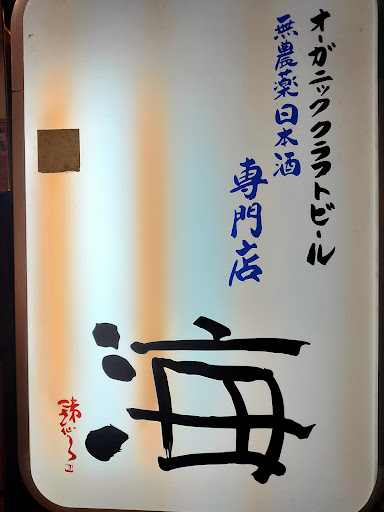 オーガニッククラフトビール
無農薬日本酒
専門店
海